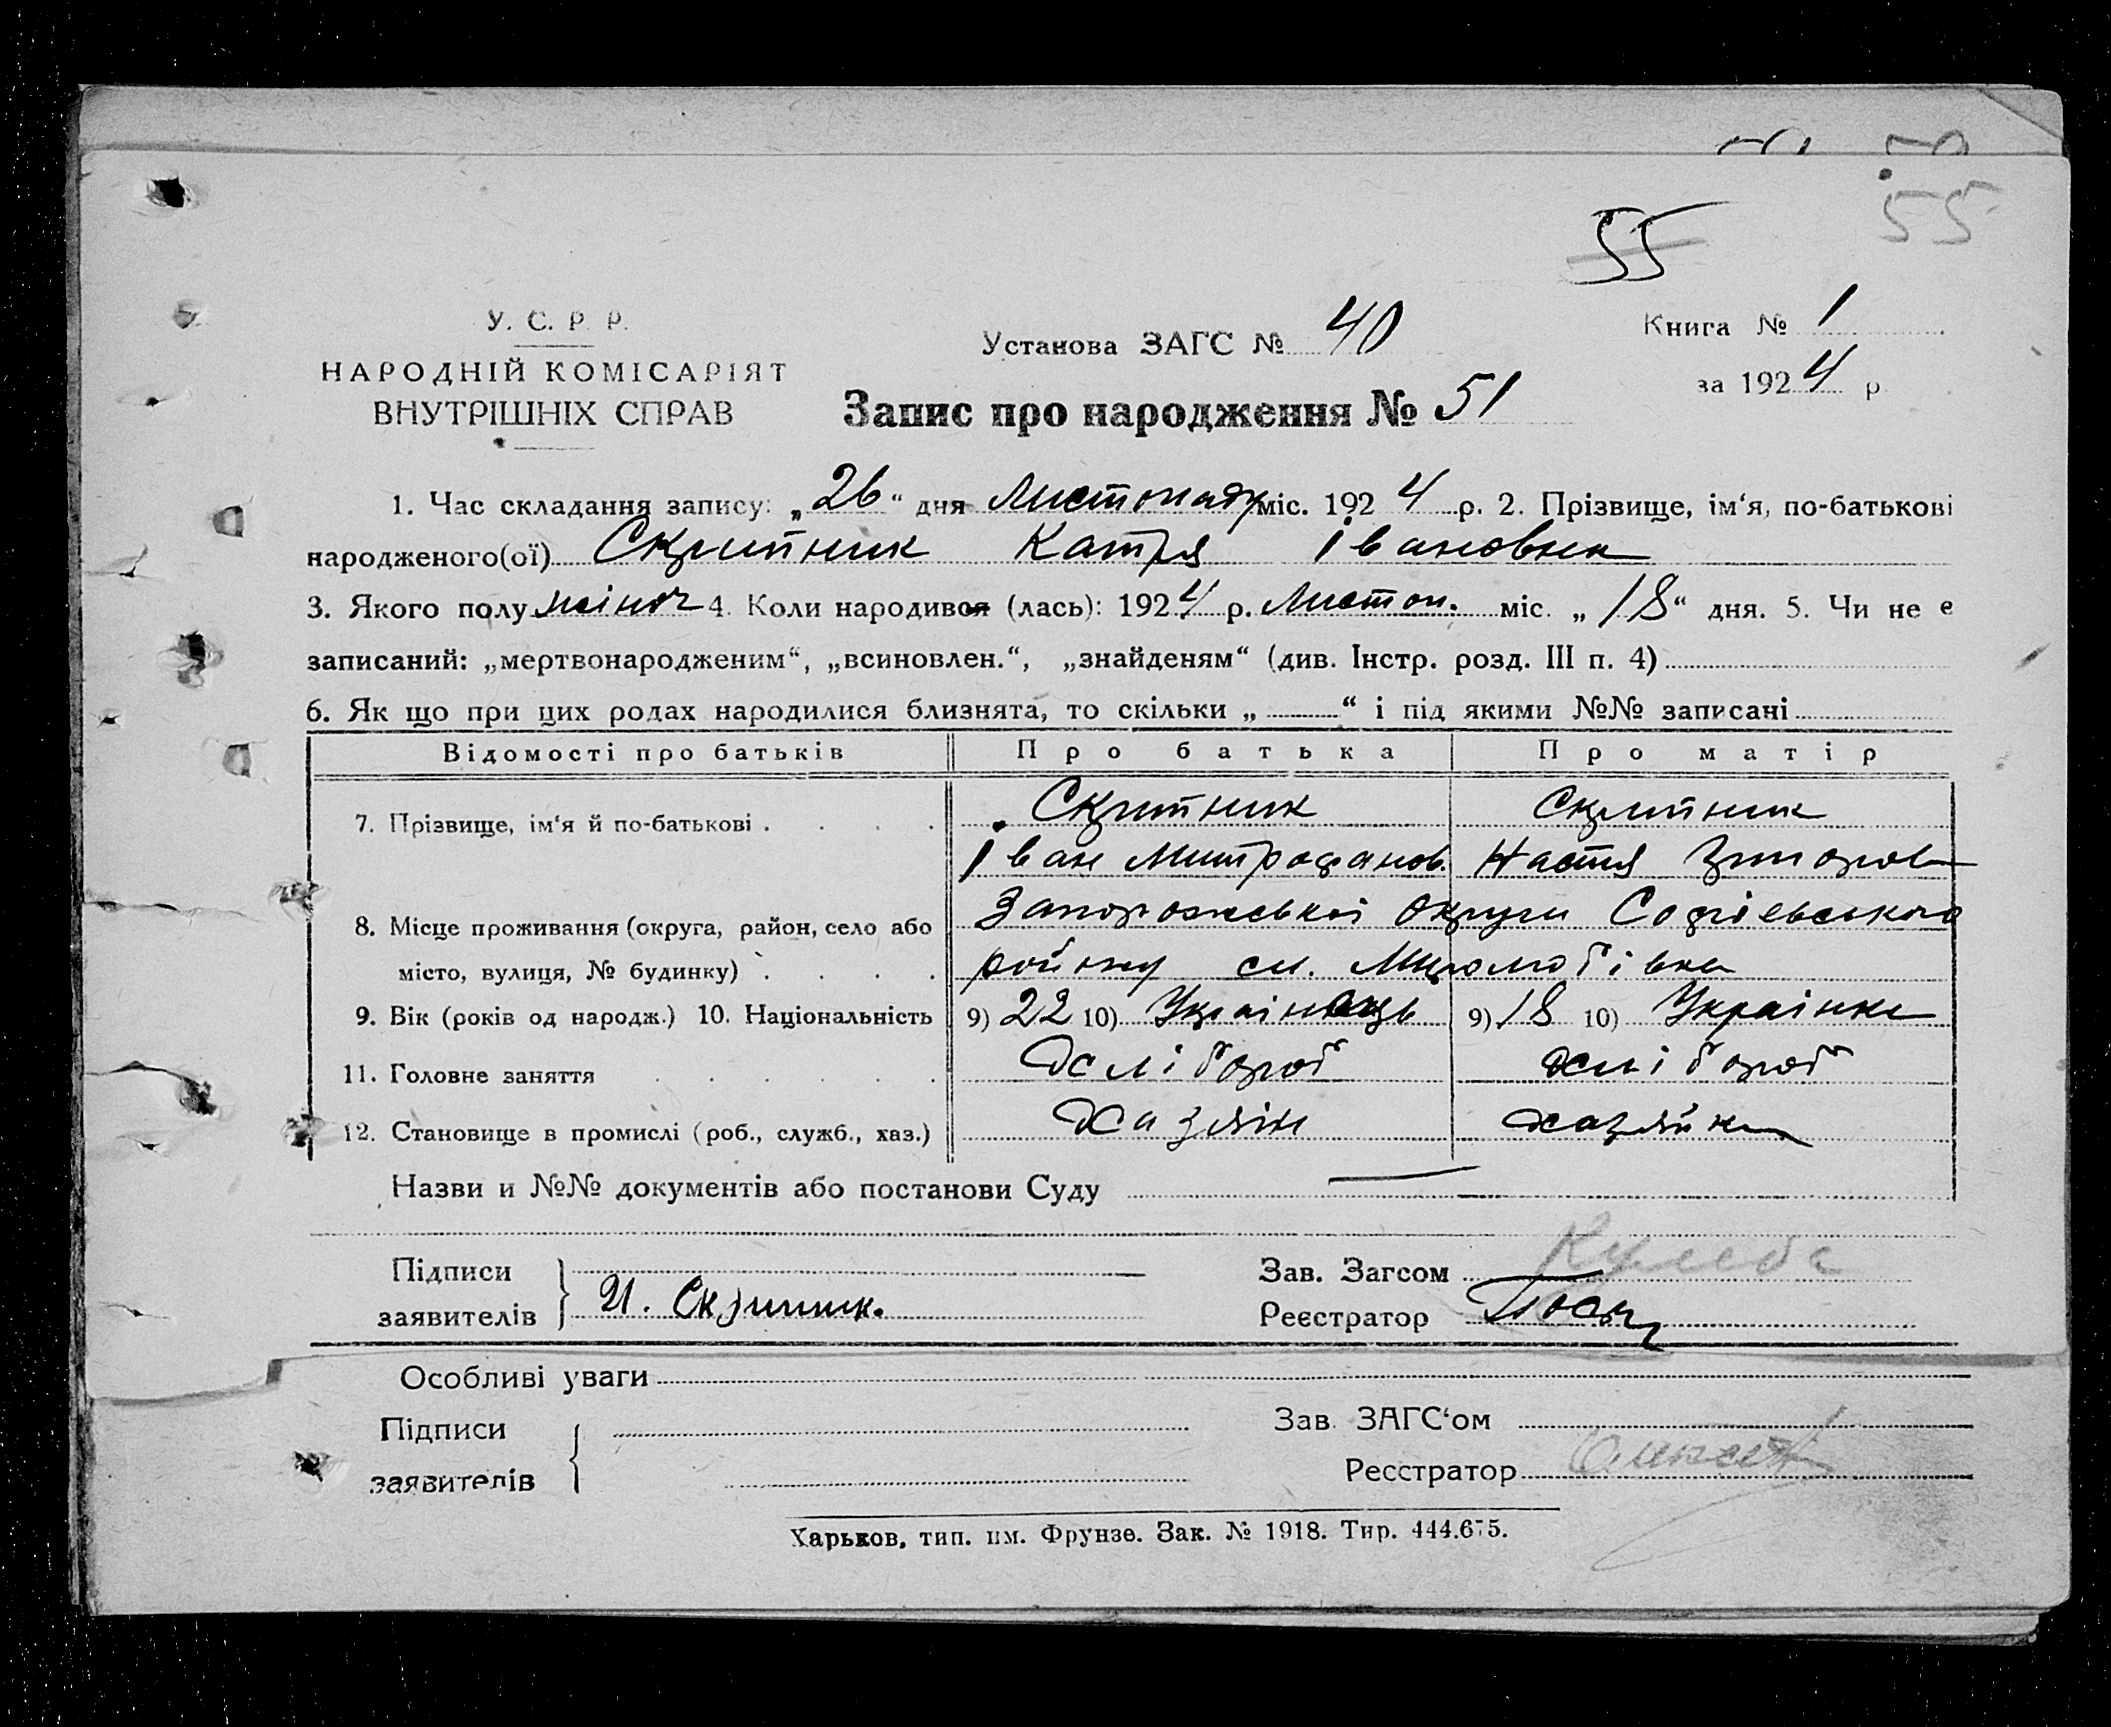 55
55
У. С. Р. Р.
НАРОДНІЙ КОМІСАРІЯТ
ВНУТРІШНІХ СПРАВ
Установа ЗАГС № 40
Книга № 1
за 1924 р
Запис про народження № 51
1. Час складання запису: „26“ дня Листопаду міс. 1924 р. 2. Прізвище, ім‘я, по-батькові
народженого(ої) Скрипник Катря Івановна
3. Якого полу жіноч 4. Коли народився (лась): 1924 р. Листоп. міс. „18“ дня. 5. Чи не е
записаний: „мертвонародженим“, „всиновлен.“, „знайденям“ (див. Інстр. розд. III п. 4)
6. Як що при цих родах народилися близнята, то скільки „ “ і під якими №№ записані
Відомості про батьків Про батька Про матір
7. Прізвище, ім‘я й по-батькові Скрипник Скрипник
Іван Митрофанов. Настя
8. Місце проживання (округа, район, село або Запорожської Округи Софіевського
місто, вулиця, № будинку) району с. Миролюбівка
9. Вік (років од народж.) 10. Національність 9) 22 10) Українець 9) 18 10) Українка
11. Головне заняття хлібороб хлібороб
12. Становище в промислі (роб., служб., хаз.) хазяїн хазяйка
Назви и №№ документів або постанови Суду —
Підписи
заявителів И. Скрипник.
Зав. Загсом Кулеба
Реєстратор
Особливі уваги
Підписи
заявителів
Зав. ЗАГС‘ом
Реєстратор
Харьков, тип. им. Фрунзе. Зак. № 1918. Тир. 444.675.